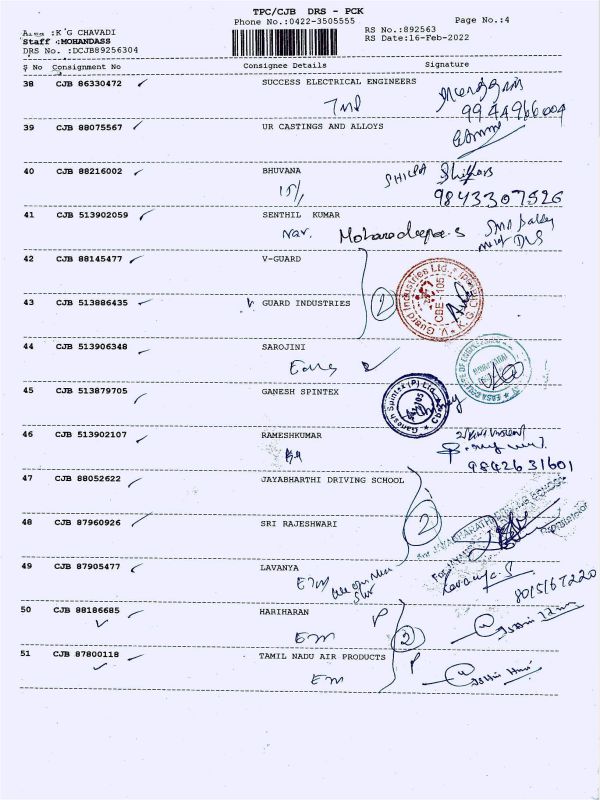 TPC/CJB DRS - PCK
Phone No.:0422-3505555
Page No.:4
Area :K G CHAVADI
RS No.:892563
Staff :MOHANDASS
RS Date:16-Feb-2022
DRS No. :DCJB89256304
S No Consignment No Consignee Details Signature
38 CJB 86330472 SUCCESS ELECTRICAL ENGINEERS
9944966004
39 CJB 88075567 UR CASTINGS AND ALLOYS
40 CJB 88216002 BHUVANA
SHILPA
9843307526
41 CJB 513902059 SENTHIL KUMAR
42 CJB 88145477 V-GUARD
43 CJB 513886435 V GUARD INDUSTRIES
2
CBE-105
44 CJB 513906348 SAROJINI
45 CJB 513879705 GANESH SPINTEX
Ganesh Spintex (P) Ltd.
46 CJB 513902107 RAMESHKUMAR
9842631601
47 CJB 88052622 JAYABHARTHI DRIVING SCHOOL
2
48 CJB 87960926 SRI RAJESHWARI
49 CJB 87905477 LAVANYA
Lavanya.S
8015167220
50 CJB 88186685 HARIHARAN
EM
P
2
51 CJB 87800118 TAMIL NADU AIR PRODUCTS
EM
P